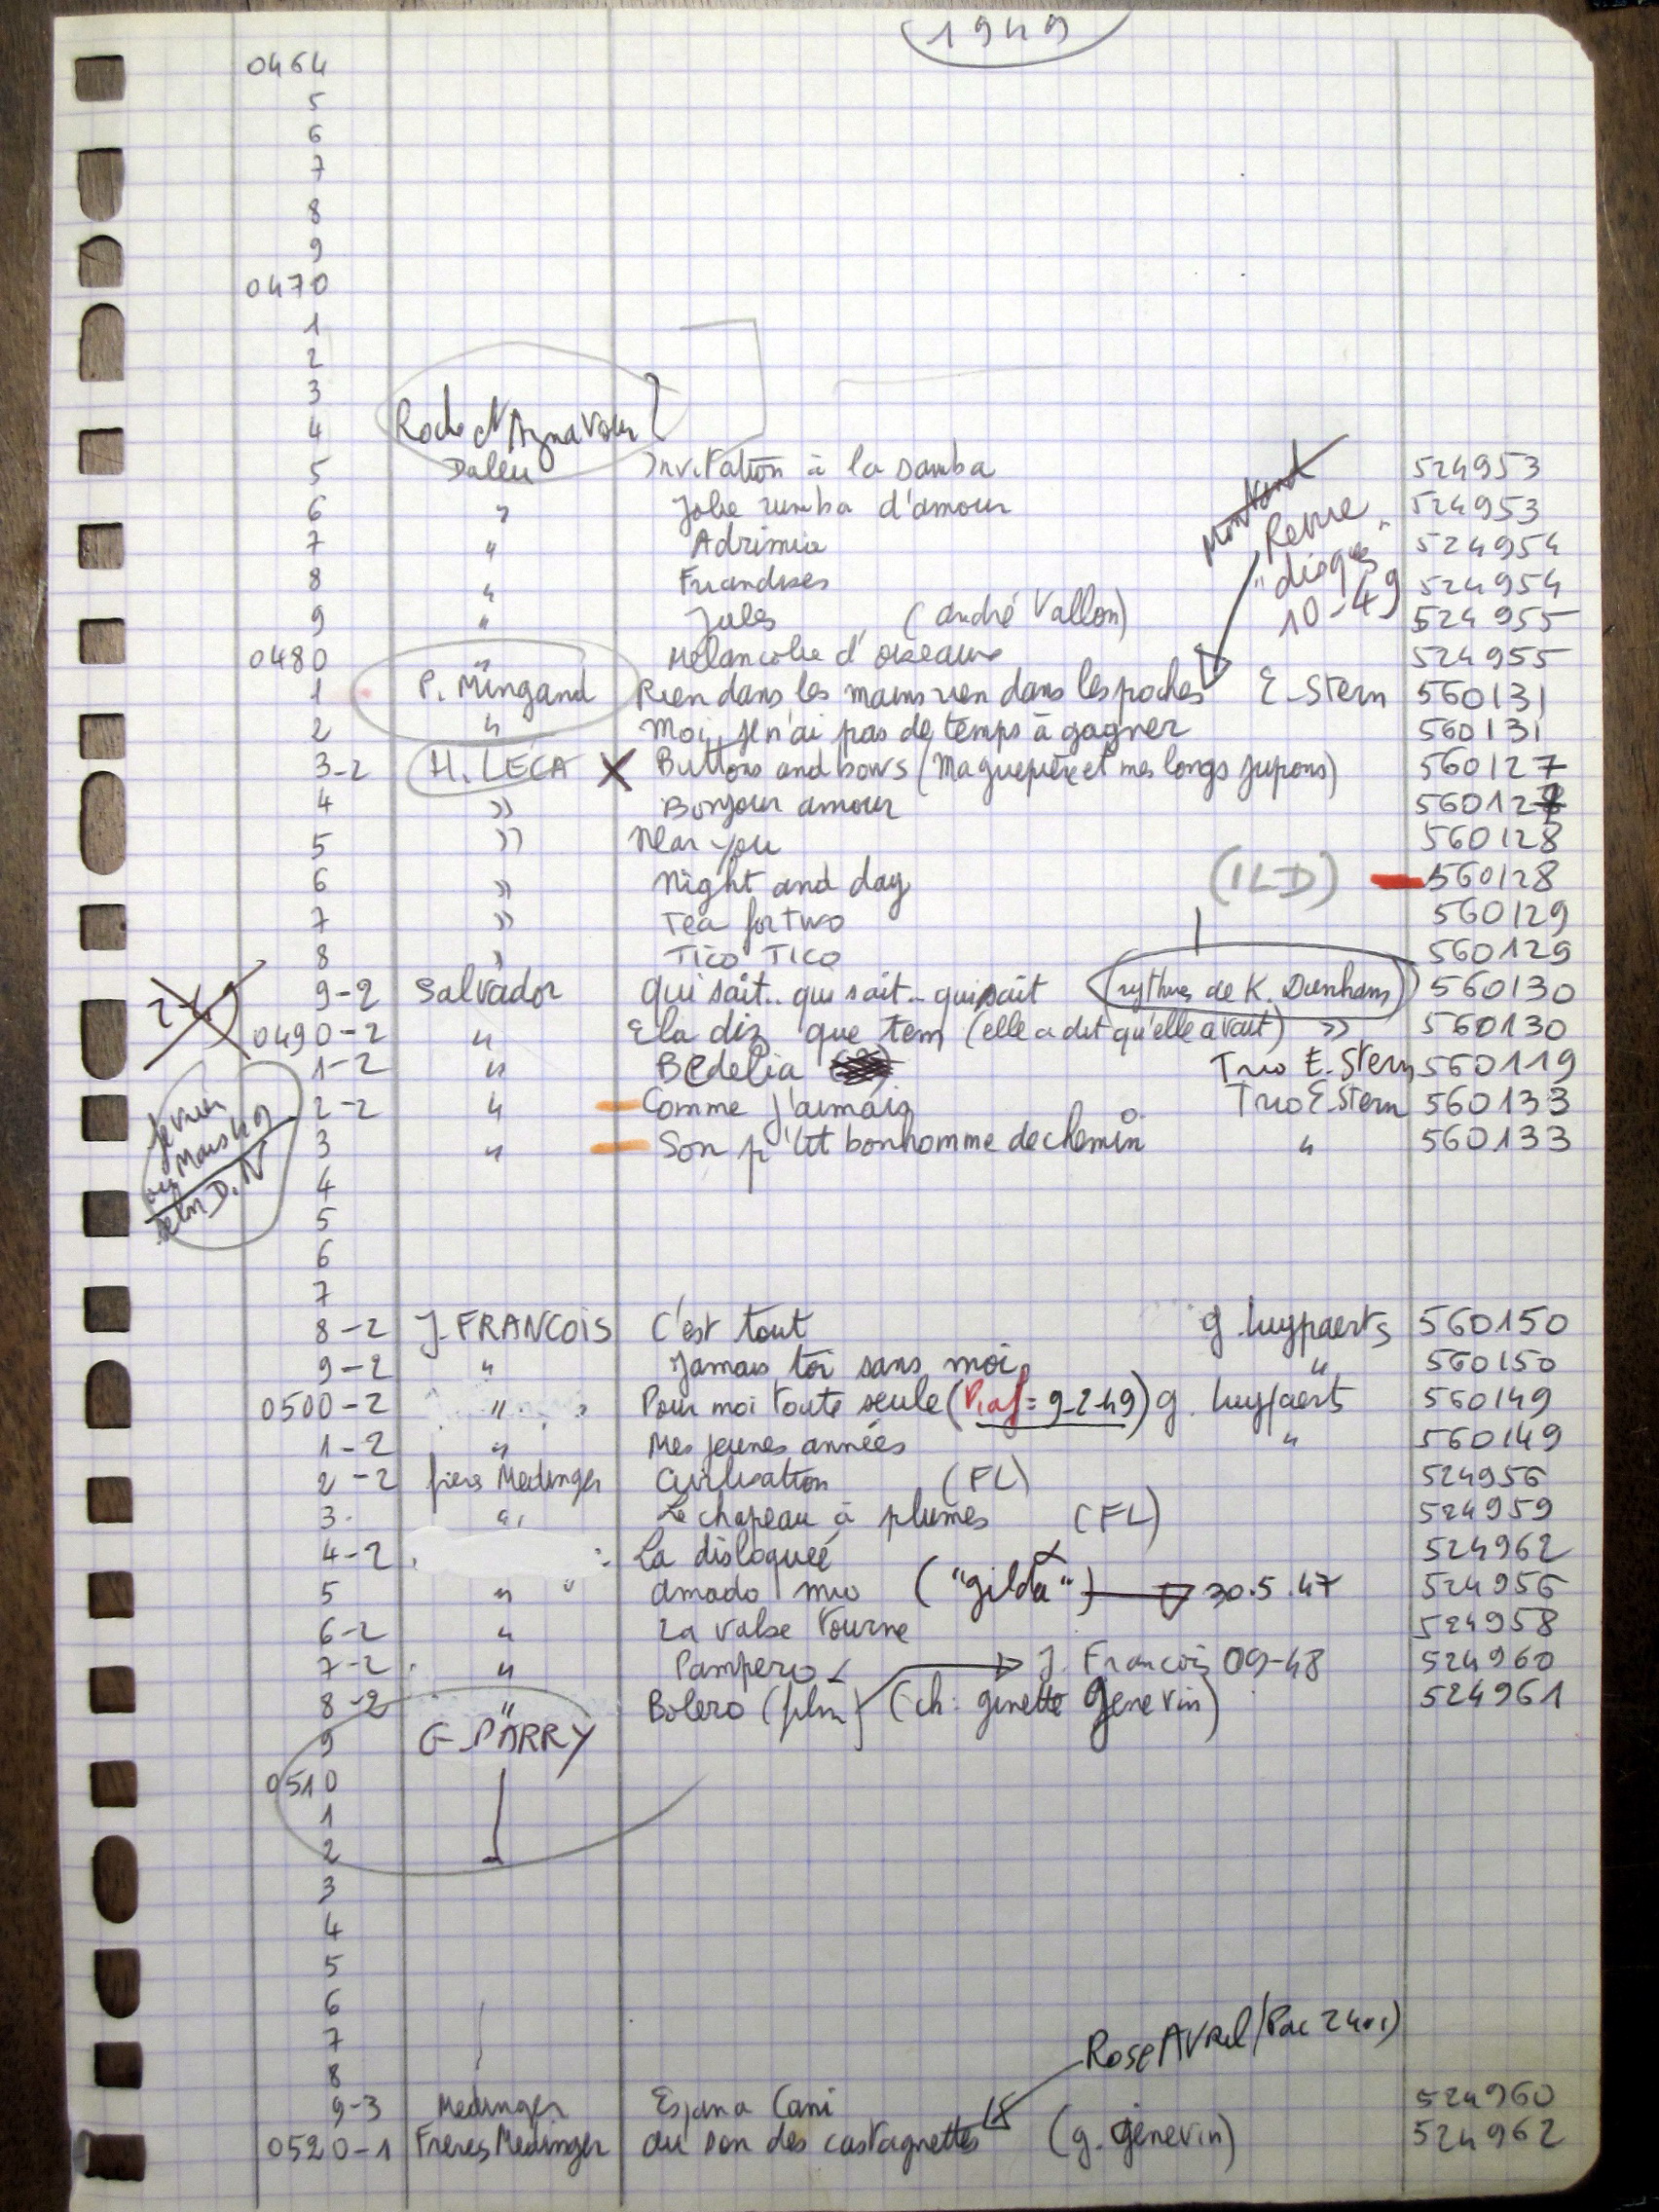 1949
0464
5
6
7
8
9
0470
1
2
3
4 Roche et Aznavour ?
5 Daleu Invitation à la samba 524953
6 " Jolie rumba d'amour 524953
7 " Adrimia 524954
8 " Friandises 524954
9 " Jules (andré Vallon) 524955
0480 " Melancolie d'oiseaux 524955
Montand
Revue
"disques"
10-49
1 P. Mingand Rien dans les mains rien dans les poches E. Stern 560131
2 " Moi, je n'ai pas de temps à gagner 560131
3-2 H. LECA X Buttons and bows (Ma guepière et mes longs jupons) 560127
4 " Bonjour amour 560127
5 " Near you 560128
6 " Night and day (ILD) 560128
7 " Tea for two 560129
8 " Tico Tico 560129
9-2 Salvador Qui sait.. qui sait.. qui sait (rythmes de K. Dunham) 560130
0490-2 " Ela diz que tem (elle a dit qu'elle avait) " 560130
1-2 " Bedelia Trio E. Stern 560119
2-2 " Comme j'aimais Trio E. Stern 560133
3 " Son p'tit bonhomme de chemin " 560133
février
ou Mars 49
selon D.N
4
5
6
7
8-2 J. FRANCOIS C'est tout g. luypaerts 560150
9-2 " Jamais toi sans moi " 560150
0500-2 " Pour moi toute seule (Piaf = 9-2-49) g. luypaert 560149
1-2 " Mes jeunes années " 560149
2-2 frères Medinger Civilisation (FL) 524956
3. " Le chapeau à plumes (FL) 524959
4-2 La disloquée 524962
5 " amado mio ("gilda") 30.5.47 524956
6-2 " La valse tourne 524958
7-2 " Pampero J. Francois 09-48 524960
8-2 " Bolero (film) (ch: ginette genevin) 524961
9 G. PARRY
0510
1
2
3
4
5
6
7
8
Rose AVRIL (Pac 2401)
9-3 Medinger Espana Cani 524960
0520-1 Freres Medinger au son des castagnettes (g. genevin) 524962